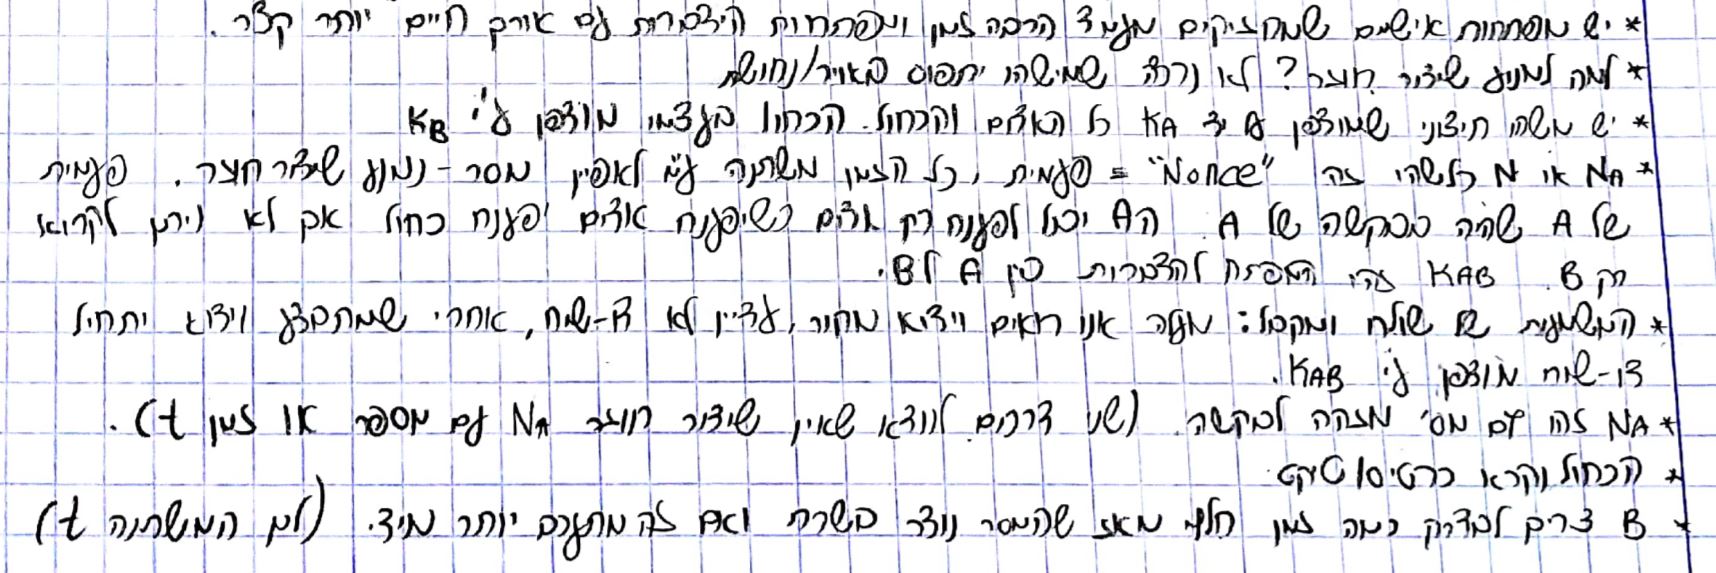 * יש מפתחות אישים שמחזיקים מעמד הרבה זמן ומפתחות הידברות עם אורך חיים יותר קצר.
* למה למנוע שידור חוזר? לא נרצה שמישהו יתפוס באויר/נחושת
* יש משהו חיצוני שמוצפן על יד KA כל האדום והכחול. הכחול בעצמו מוצפן ע"י KB
* NA או N כלשהי זה "Nonce" = פעמית, כל הזמן משתנה ע"מ לאפיין מסר - נמנע שידור חוזר. פעמית
של A שהיה מבקשה של A. הA יכול לפענח רק אדום כשיפענח אדום יפענח כחול אך לא ניתן לקרוא
רק B. KAB זהו המפתח להידברות בין A לB.
* המשמעות של שולח ומקבל: מעלה אנו רואים וידוא מקור, עדיין לא דו-שיח, אחרי שמתבצע וידוא יתחיל
דו-שיח מוצפן ע"י KAB.
* NA זהו גם מס' מזהה לבקשה. (שני דרכים לוודא שאין שידור חוזר NA עם מספר או זמן t).
* הכחול נקרא כרטיס/טיקט
* B צריך לבדוק כמה זמן חלף מאז שהמסר נוצר בשרת ואם זה מתעכב יותר מידי. (לכן המשתנה t)